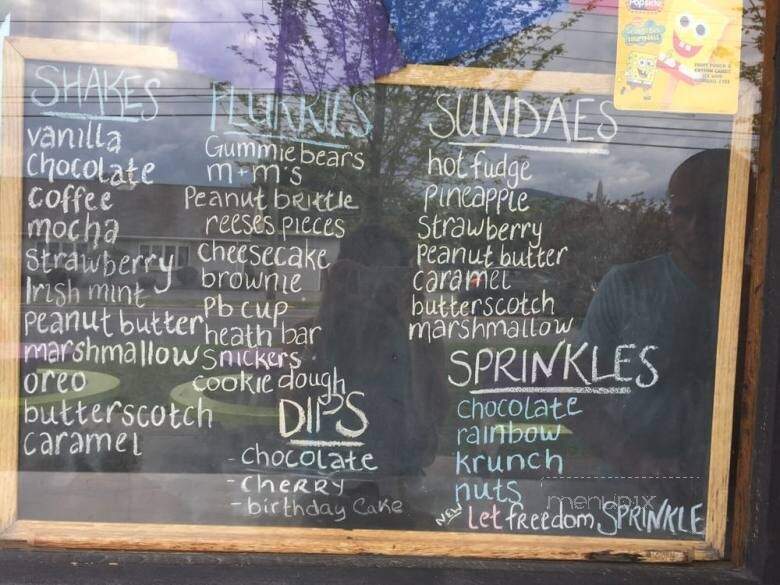 SHAKES
vanilla
chocolate
coffee
mocha
strawberry
Irish mint
peanut butter
marshmallow
oreo
butterscotch
caramel
FLURRIES
Gummie bears
m+m's
Peanut brittle
reeses pieces
cheesecake
brownie
Pb cup
heath bar
Snickers
cookie dough
DIPS
- chocolate
- CHERRY
- birthday Cake
SUNDAES
hot fudge
pineapple
Strawberry
Peanut butter
caramel
butterscotch
marshmallow
SPRINKLES
chocolate
rainbow
krunch
nuts
NEW Let freedom SPRINKLE
menupix
Popsicle